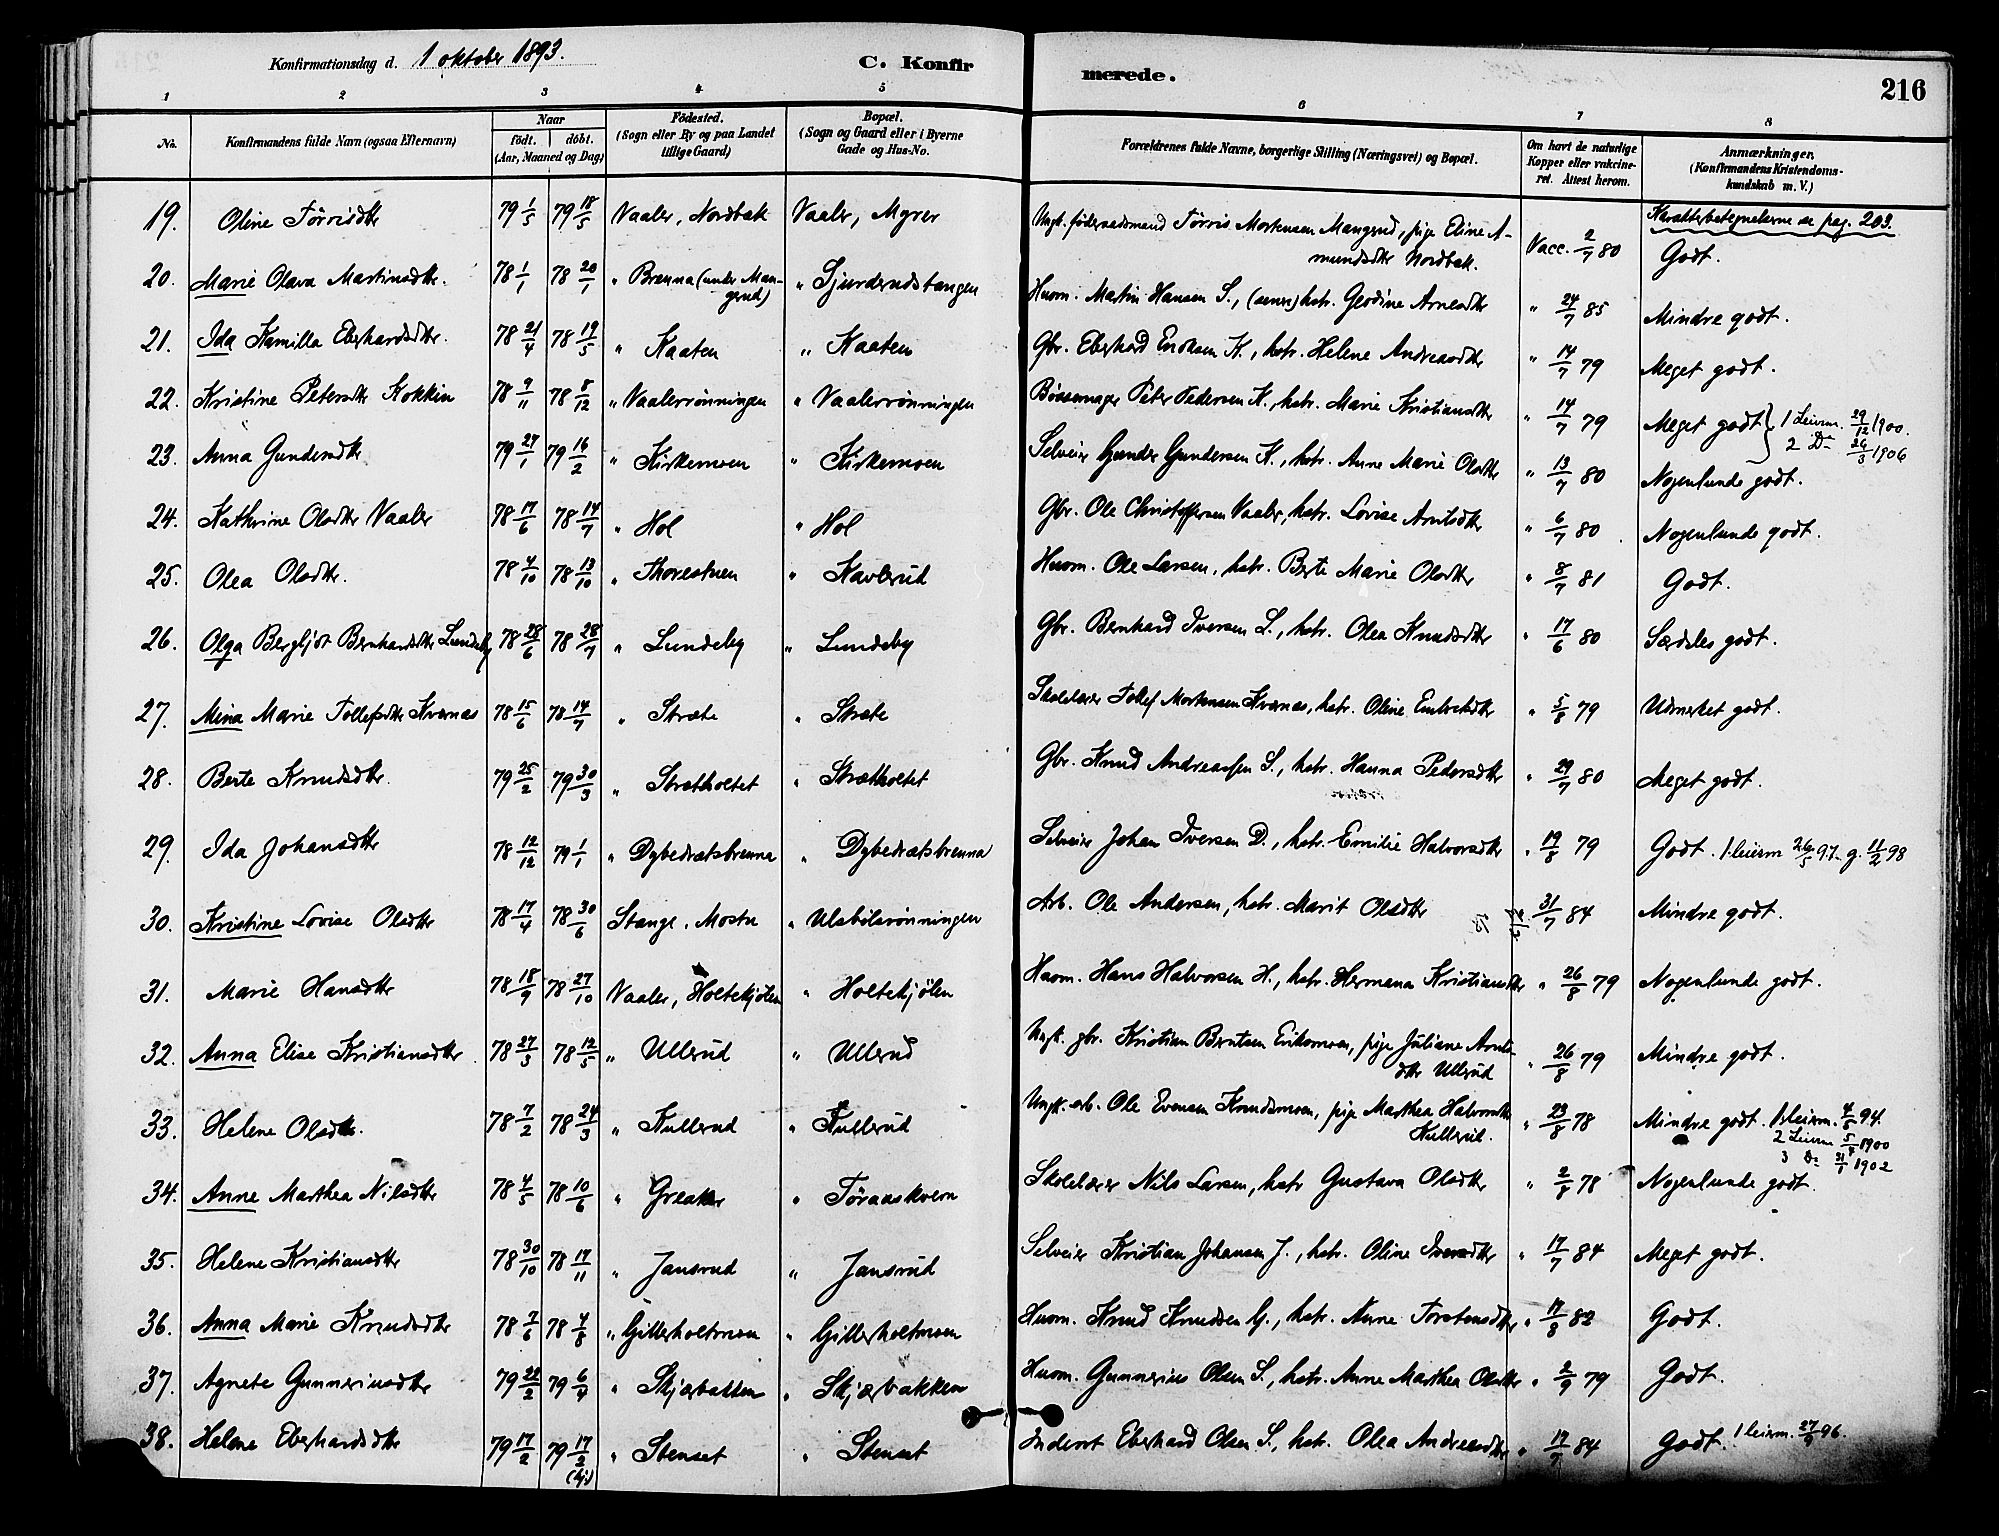 Konfirmationsdag d. 1 oktober 1893.
C. Konfir
merede.
216
1 2 3 4 5 6 7 8
No.
Konfirmandens fulde Navn (ogsaa Efternavn)
Naar
födt. döbt.
(Aar, Maaned og Dag)
Födested.
(Sogn eller By og paa Landet
tillige Gaard)
Bopæl.
(Sogn og Gaard eller i Byerne
Gade og Hus-No.
Forældrenes fulde Navne, borgerlige Stilling (Næringsvei) og Bopæl.
Om havt de naturlige
Kopper eller vakcine-
ret. Attest herom.
Anmærkninger.
(Konfirmandens Kristendoms-
kundskab m. V.)
Karakterbetegnelserne se pag. 203.
19. Oline Törrisdtr 79 1/5 79 18/5 Vaaler, Nordbak Vaaler, Myrer Ugft. föderaadsmand Törris Mortensen Mangrud, pige Eline A-
mundsdtr Nordbak. Vacc. 2/7 80 Godt.
20. Marie Olava Martinsdtr. 78 1/1 78 20/1 " Brænna (under Man-
gerud) " Sjurderudstangen Husm. Martin Hansen S., (senere) hstr. Gerdine Arnesdtr " 24/7 85 Mindre godt.
21. Ida Kamilla Eberhardsdtr. 78 21/4 78 19/5 " Kaaten " Kaaten Gbr. Eberhard Enoksen K., hstr. Helene Andreasdtr " 14/7 79 Meget godt.
22. Kristine Petersdtr Kokkin 78 9/11 78 8/12 " Vaalerrönningen " Vaalerrönningen Bössemager Peter Pedersen K., hstr. Marie Kristiansdtr " 14/7 79 Meget godt } 1 Leierm. 29/12 1900.
2 Do 26/3 1906
23. Anna Gundersdtr 79 27/1 79 16/2 " Kirkemoen " Kirkemoen Selveier Gunder Gundersen K., hstr. Anne Marie Olsdtr " 13/7 80 Nogenlunde godt.
24. Kathrine Olsdtr Vaaler 78 17/6 78 14/7 " Hol " Hol Gbr. Ole Christoffersen Vaaler, hstr. Lovise Arntsdtr " 6/7 80. Nogenlunde godt.
25. Olea Olsdtr. 78 4/10 78 13/10 " Thorestuen " Kavlerud Husm. Ole Larsen, hstr. Berte Marie Olsdtr " 8/7 81 Godt.
26. Olga Bergljot Bernhardsdtr Lundeby 78 28/6 78 28/7 " Lundeby " Lundeby Gbr. Bernhard Iversen L., hstr. Olea Knudsdtr " 17/6 80 Særdeles godt.
27. Mina Marie Tollefsdtr Kværnæs 78 15/6 78 14/7 " Stræte " Stræte Skolelærer Tollef Mortensen Kværnæs, hstr. Oline Embretsdtr " 5/8 79 Udmerket godt.
28. Berte Knudsdtr. 79 25/2 79 30/3 " Strætholtet " Strætholtet Gbr. Knud Andreassen S., hstr. Hanna Pedersdtr " 29/7 80 Meget godt.
29. Ida Johansdtr 78 12/12 79 1/1 " Dybedratsbrenna " Dybedratsbrenna Selveier Johan Iversen D., hstr. Emilie Halvorsdtr " 19/8 79 Godt. 1 leierm 26/5 97. g. 11/2 98
30. Kristine Lovise Olsdtr 78 17/4 78 30/6 Stange, Mostu " Ulsbölrönningen Arb. Ole Andersen, hstr. Marit Olsdtr 31/7 84 Mindre godt.
31. Marie Hansdtr 78 18/9 78 27/10 Vaaler, Holtekjölen " Holtekjölen Husm. Hans Halvorsen H., hstr. Hermana Kristiansdtr " 26/8 79 Nogenlunde godt.
32. Anna Elise Kristiansdtr 78 27/3 78 12/5 " Ullerud " Ullerud Ugft. gbr. Kristian Berntsen Eriksmoen, pige Juliane Arnts-
dtr Ullerud " 26/8 79 Mindre godt.
33. Helene Olsdtr. 78 7/2 78 24/3 " Kullerud " Kullerud Ugft. arb. Ole Evensen Knudsmoen, pige Marthea Halvorsdtr
Kullerud. " 23/8 78 Mindre godt. 1 leierm. 4/6 94.
2 Leierm 5/8 1900
3 Do 31/1 1902
34. Anne Marthea Nilsdtr 78 4/5 78 10/6 " Greaker " Töraaskvern Skolelærer Nils Larsen, hstr Gustava Olsdtr " 2/8 78 Nogenlunde godt.
35. Helene Kristiansdtr 78 30/10 78 17/11 " Jansrud " Jansrud Selveier Kristian Johansen J., hstr. Oline Iversdtr " 17/7 84 Meget godt.
36. Anna Marie Knudsdtr 78 7/6 78 4/8 " Gillerholtmoen " Gillerholtmoen Husm. Knud Knudsen G., hstr. Anne Torstensdtr " 17/8 82 Godt.
37. Agnete Gunneriusdtr 79 22/2 79 6/4 " Skjærbakken " Skjærbakken Husm. Gunnerius Olsen S., hstr. Anne Marthea Olsdtr " 2/9 79 Godt.
38. Helene Eberhardsdtr 79 17/2 79 17/2 (hj.) " Stenset " Stenset Inderst Eberhard Olsen S., hstr. Olea Andreasdtr " 17/7 84 Godt. 1 leierm. 27/9 96.